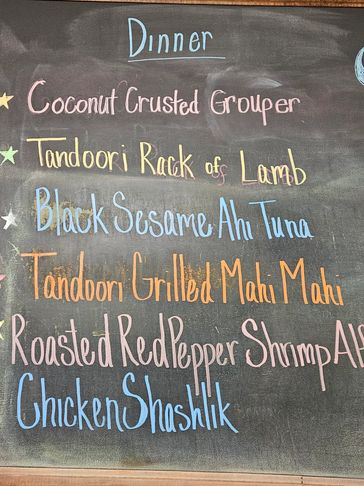 Dinner
Coconut Crusted Grouper
Tandoori Rack of Lamb
Black Sesame Ahi Tuna
Tandoori Grilled Mahi Mahi
Roasted Red Pepper Shrimp Alf
Chicken Shashlik